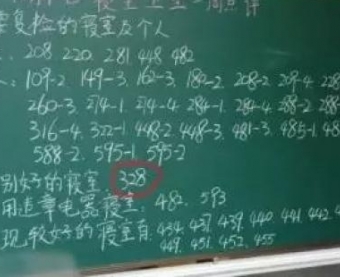 寝室卫生 一周点评
要复检的寝室及个人
: 208. 220. 281. 448. 482
: 109-2. 149-3. 162-3. 182-2. 208-2. 209-4. 228
260-3. 274-1. 274-4. 284-1. 284-4. 288-2. 288-
316-4. 322-1. 448-2. 448-3. 481-3. 485-1. 48
588-2. 595-1. 595-2
别好的寝室 328
用违章电器寝室: 482. 593
现较好的寝室有: 434. 437. 439. 440. 441. 442.
449. 451. 452. 455